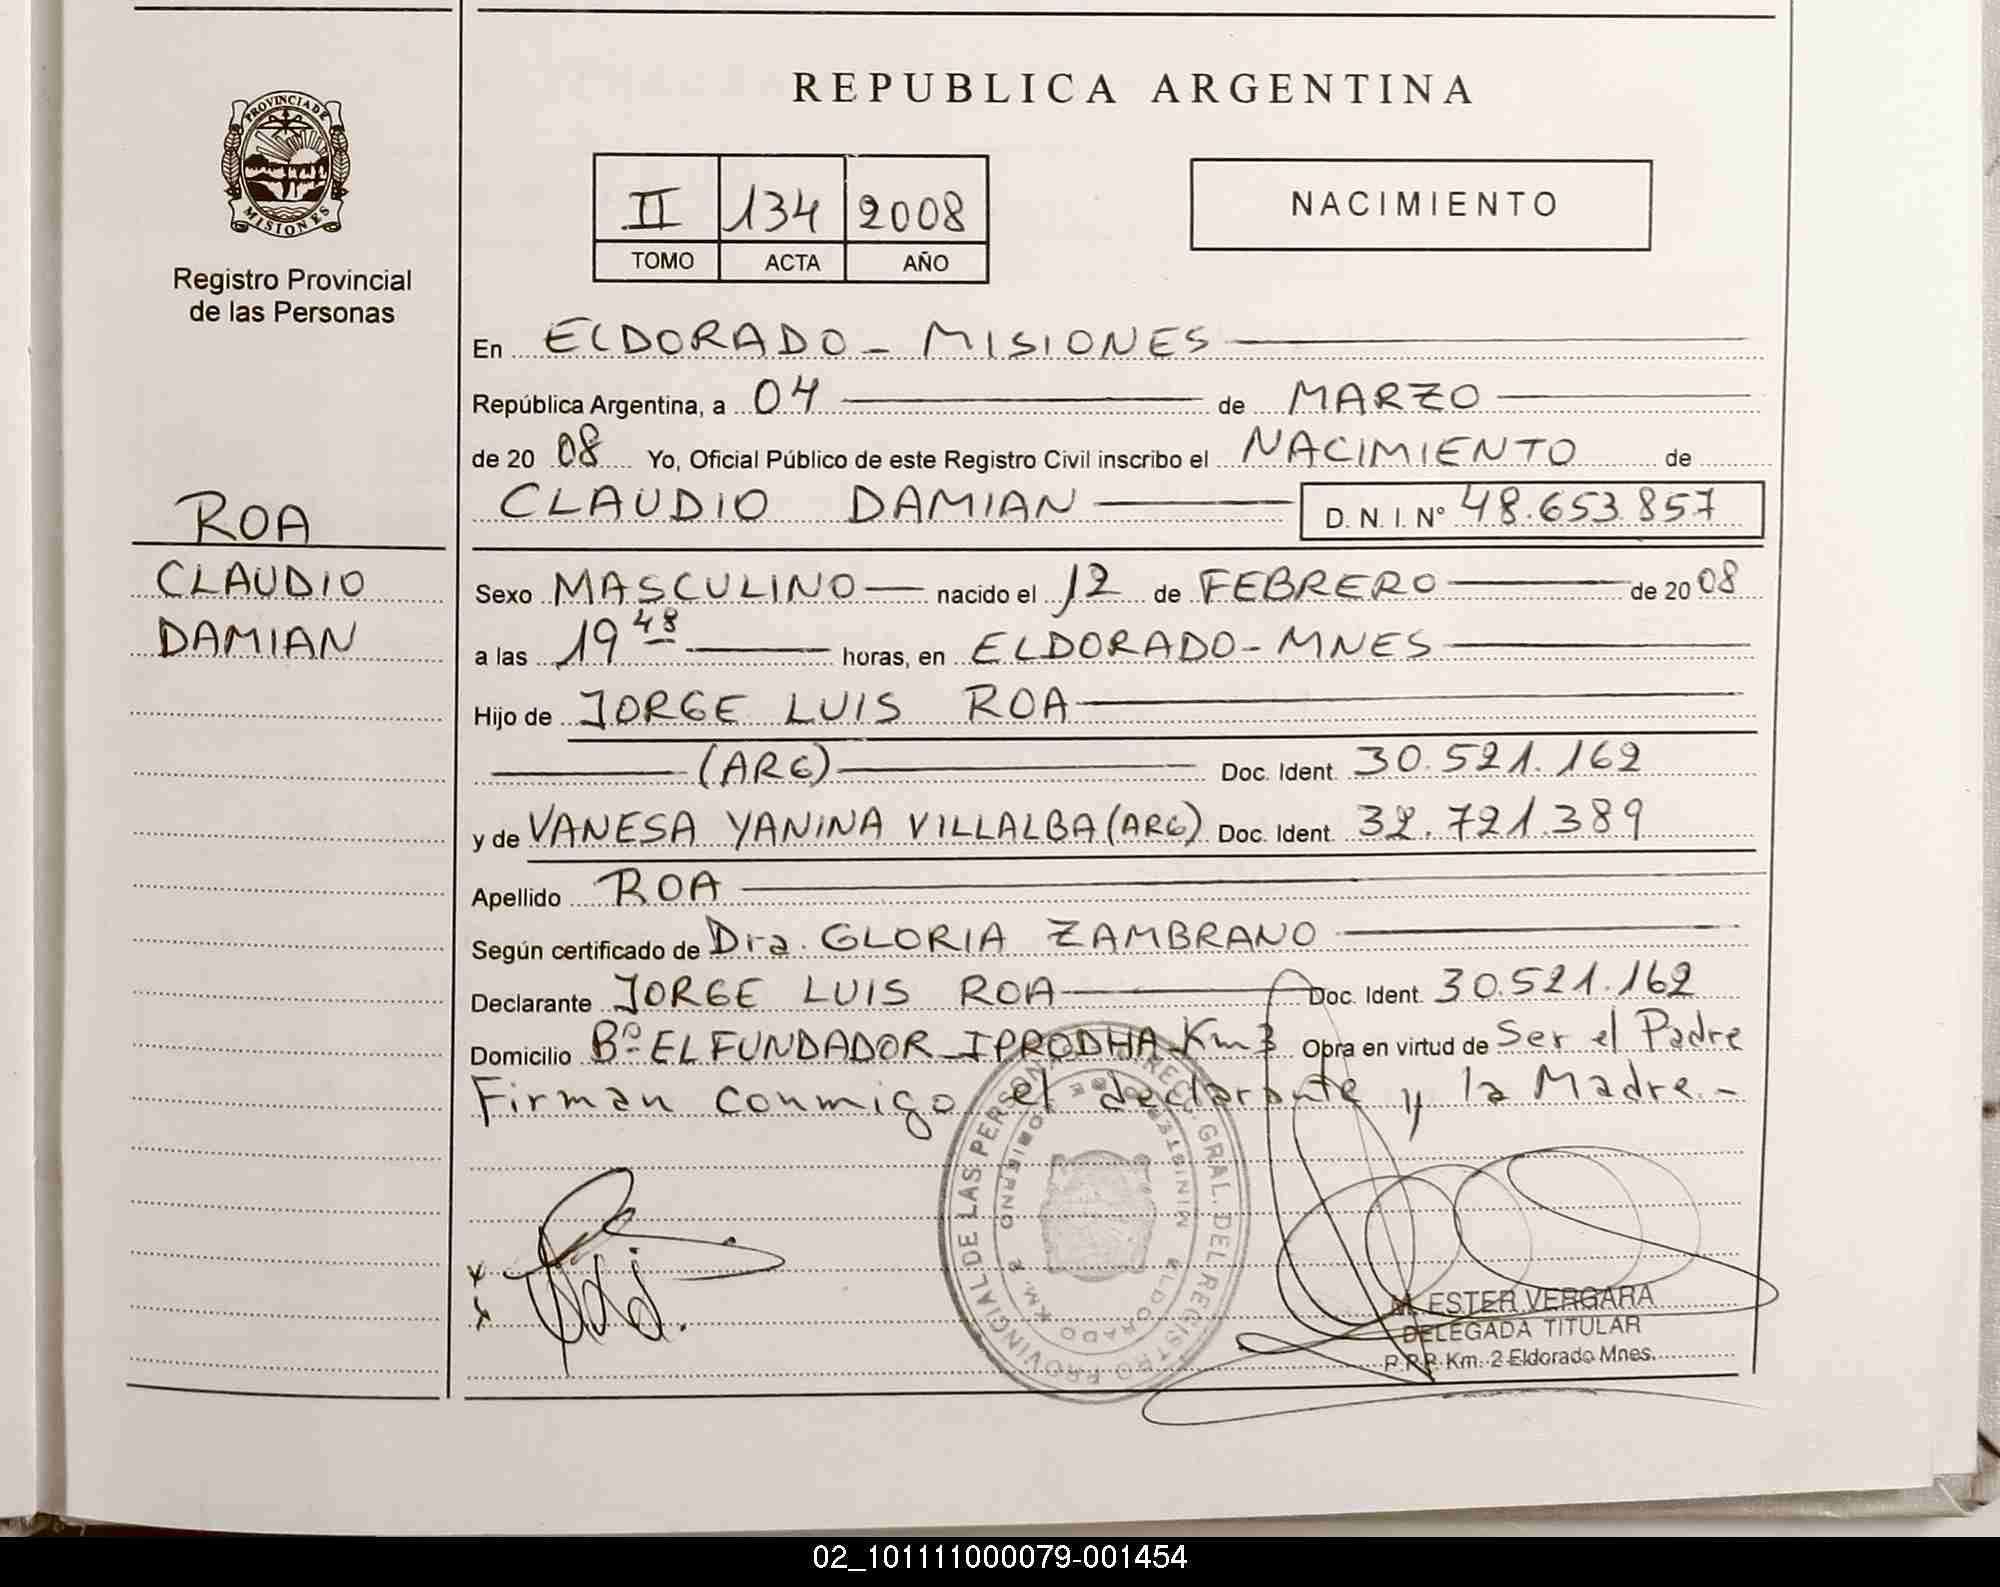 REPUBLICA ARGENTINA
PROVINCIA DE
MISIONES
Registro Provincial
de las Personas
II 134 2008
TOMO ACTA AÑO
NACIMIENTO
En ELDORADO - MISIONES
República Argentina, a 04 de MARZO
de 20 08 Yo, Oficial Público de este Registro Civil inscribo el NACIMIENTO de
CLAUDIO DAMIAN D. N. I. Nº 48.653.857
ROA
CLAUDIO
DAMIAN
Sexo MASCULINO nacido el 12 de FEBRERO de 20 08
a las 19 48 horas, en ELDORADO - MNES
Hijo de JORGE LUIS ROA
(ARG) Doc. Ident. 30.521.162
y de VANESA YANINA VILLALBA (ARG) Doc. Ident. 32.721.389
Apellido ROA
Según certificado de Dra. GLORIA ZAMBRANO
Declarante JORGE LUIS ROA Doc. Ident. 30.521.162
Domicilio Bº EL FUNDADOR IPRODHA Km 3 Obra en virtud de Ser el Padre
Firman conmigo el declarante y la Madre.-
M. ESTER VERGARA
DELEGADA TITULAR
R.P.P. Km. 2 Eldorado Mnes.
02_101111000079-001454